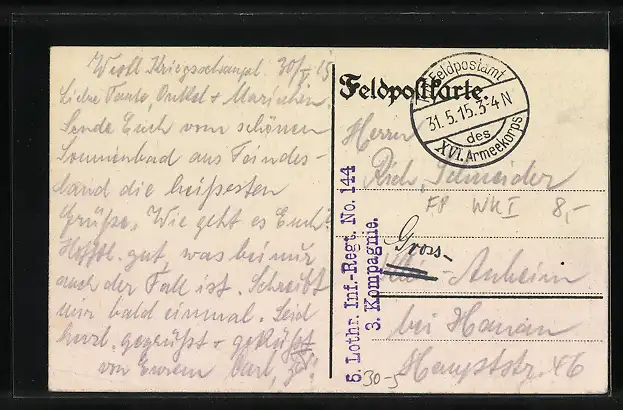 Westl. Kriegsschaupl. 30/V 15
Liebe Tante, Onkel + Mariechen,
Sende Euch vom schönen
Sonnenbad aus Feindes-
land die heißesten
Grüße. Wie geht es Euch?
Hofftl. gut, was bei mir
auch der Fall ist. Schreibt
mir bald einmal. Seid
herzl. gegrüßt + geküßt
von Eurem Carl,
Feldpostkarte.
Feldpostamt
31.5.15.3-4N
des
XVI. Armeekorps
Herrn
Rich. Schneider
FP WK I 8,-
Gross-
Auheim
bei Hanau
Hauptstr. 46
5. Lothr. Inf.-Regt. No. 144
3. Kompagnie.
30-5